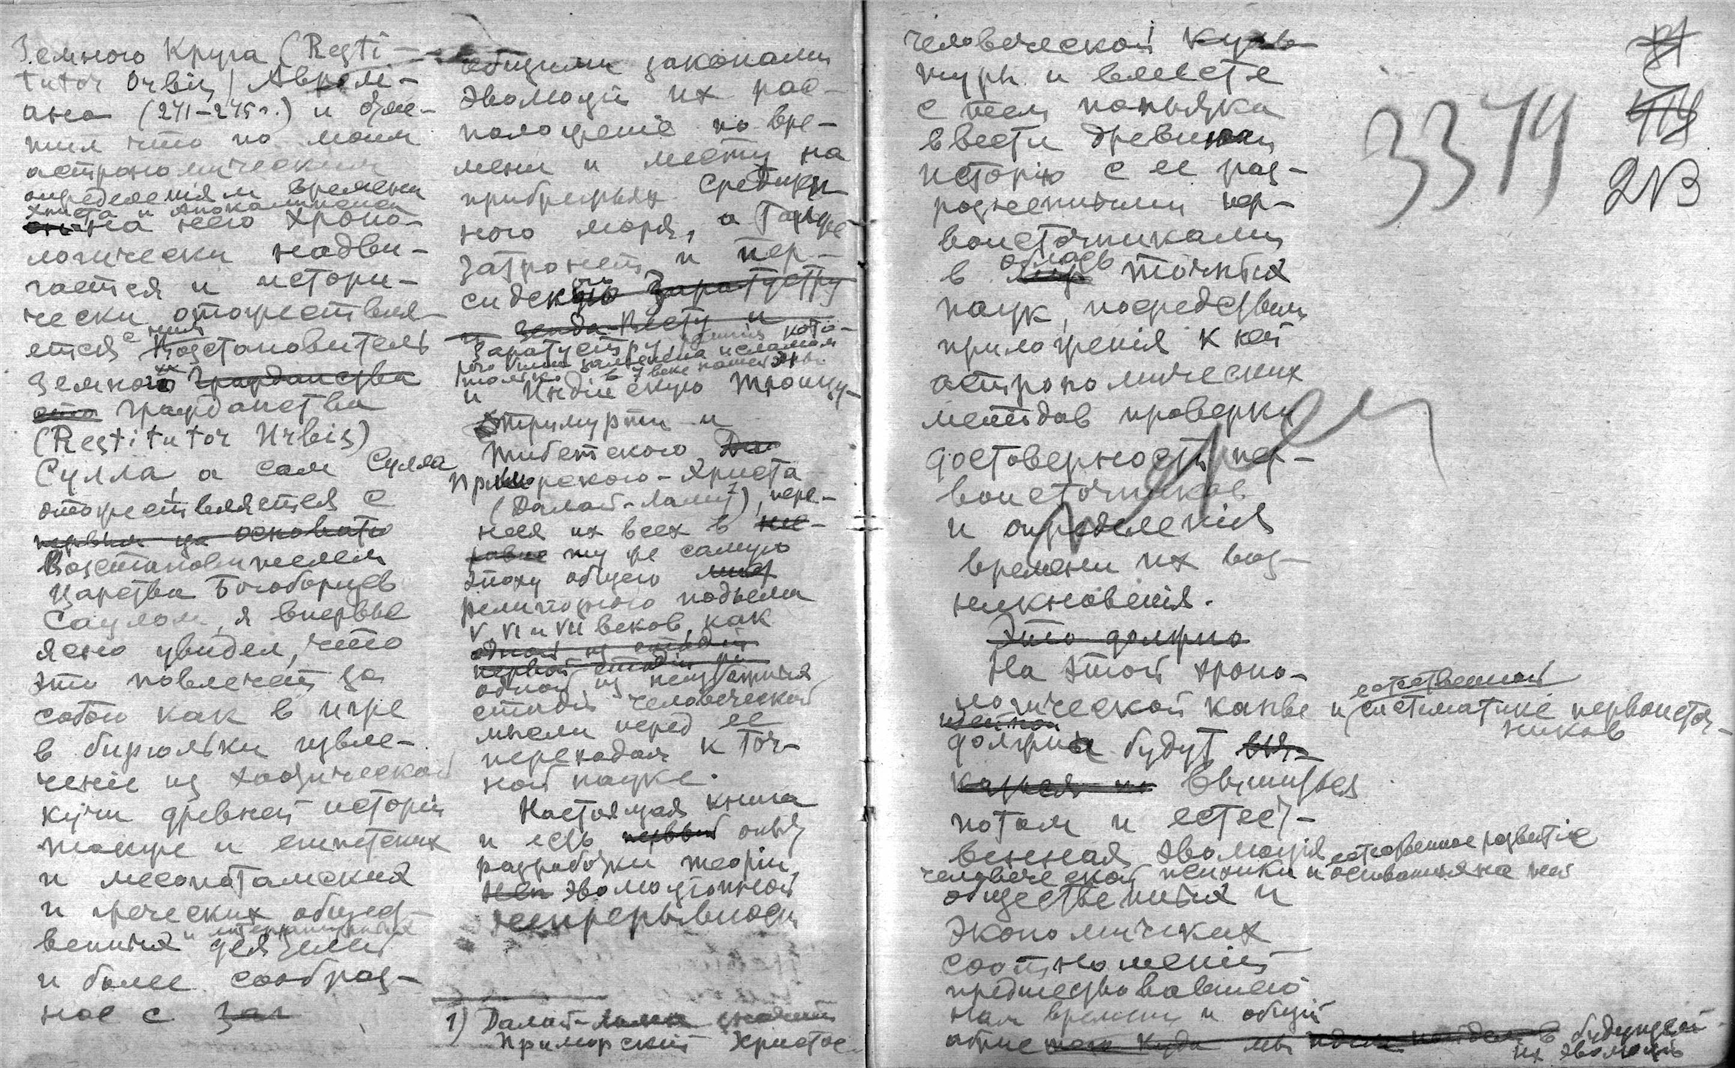 Земного Круга (Resti-
tutor Orbis) Аврели-
ана (271-275 г.) и заме-
тил что по моим
астрономическим
определениям времени
Христа и Апокалипсиса
на него хроно-
логически надви-
гается и истори-
чески отожествля-
ется с ним Возстановитель
земного гражданства
гражданства
(Restitutor Urbis)
Сулла, а сам Сулла
отожествляется с
первым из основате
Возстановителем
Царства Богоборцев
Саулом, я впервые
ясно увидел, что
это повлечет за
собою как в игре
в бирюльки извле-
чение из хаотической
кучи древней истории
также и египетских
и месопотамских
и греческих общест-
венных и литературных деятелей
и более сообраз-
ное с зак
общими законами
эволюции их рас-
положение по вре-
мени и месту на
прибрежьях Средизем-
ного моря, а также
затронет и пер-
сидскую Заратустру
Зенда-Весту и
Заратустру
и Индийскую троицу-
Тримурти и
Тибетского
Приморского-Христа
(Далай-Ламу 1), пере-
неся их всех в
ту же самую
эпоху общего
религиозного подъема
V, VI и VII веков, как
одной из стадий
первой стадии
одной из неизбежных
стадий человеческой
мысли перед ее
переходом к точ-
ной науке.
Настоящая книга
и есть первый опыт
разработки теории
эволюционной
непрерывности
1) Далай-Лама значит
Приморский Христос
человеческой куль-
туры и вместе
с тем попытка
ввести древнюю
историю с ее раз-
розненными пер-
воисточниками
в область точных
наук, посредством
приложения к ней
астрономических
методов проверки
достоверности пер-
воисточников
и определения
времени их воз-
никновения.
Это должно
На этой хроно-
логической канве и естественной систематике первоисточ-
ников
должна будут
вышиться
потом и естест-
венная эволюция
человеческой психики и естественное развитие
основанных на ней
общественных и
экономических
соотношений
предшествовавшего
нам времени и общий
их будущей
эволюции
3379
213